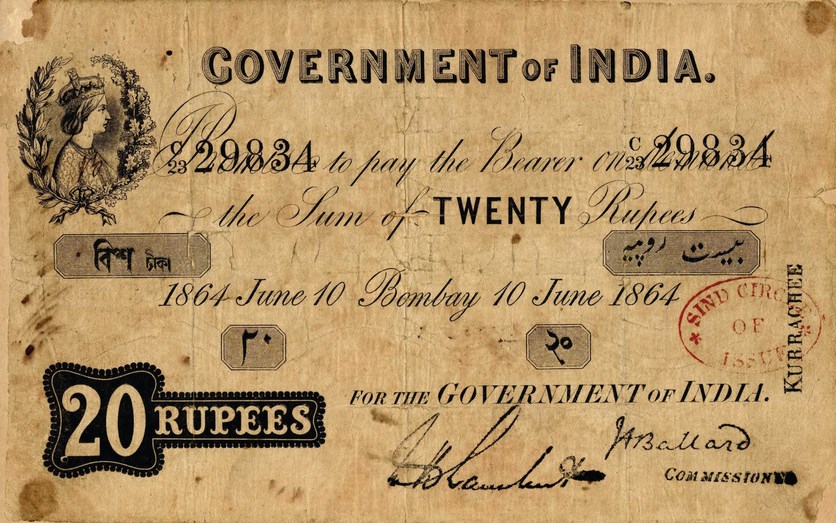 GOVERNMENT OF INDIA.
C/23 29834 C/23 29834
Promise to pay the Bearer on demand
the Sum of TWENTY Rupees
বিংশ টাকা بیست روپیہ
1864 June 10 Bombay 10 June 1864
SIND CIRCLE
OF
ISSUE
KURRACHEE
۲۰ २०
20 RUPEES
FOR THE GOVERNMENT OF INDIA.
J A Ballard
COMMISSIONER